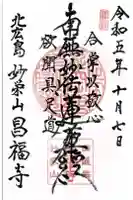 令和五年十月七日
合掌以敬心
南無妙法蓮華経
欲聞具足道
北広島 妙栄山 昌福寺